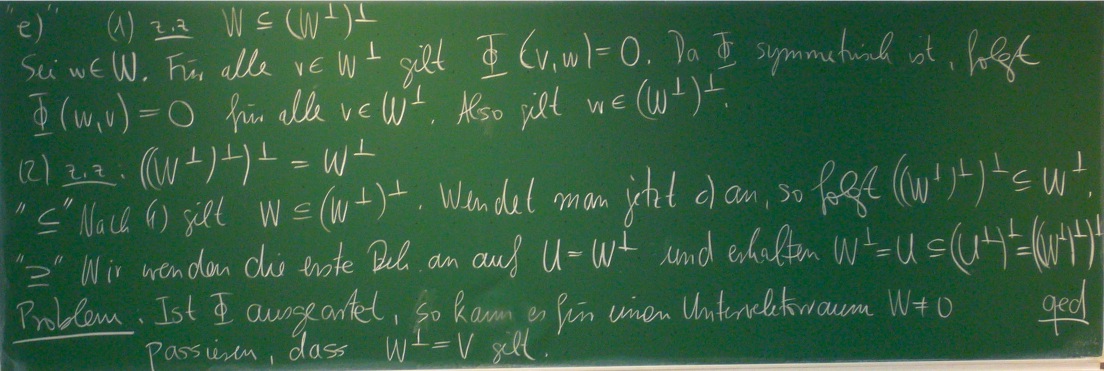 "e)" (1) z.z W ⊆ (W^⊥)^⊥
Sei w∈W. Für alle v∈W^⊥ gilt Φ(v,w)=0. Da Φ symmetrisch ist, folgt
Φ(w,v)=0 für alle v∈W^⊥. Also gilt w∈(W^⊥)^⊥.
(2) z.z.: ((W^⊥)^⊥)^⊥ = W^⊥
"⊆" Nach (1) gilt W⊆(W^⊥)^⊥. Wendet man jetzt c) an, so folgt ((W^⊥)^⊥)^⊥ ⊆ W^⊥.
"⊇" Wir wenden die erste Beh. an auf U=W^⊥ und erhalten W^⊥=U⊆(U^⊥)^⊥=((W^⊥)^⊥)^⊥
Problem. Ist Φ ausgeartet, so kann es für einen Untervektorraum W≠0 qed
passieren, dass W^⊥=V gilt.